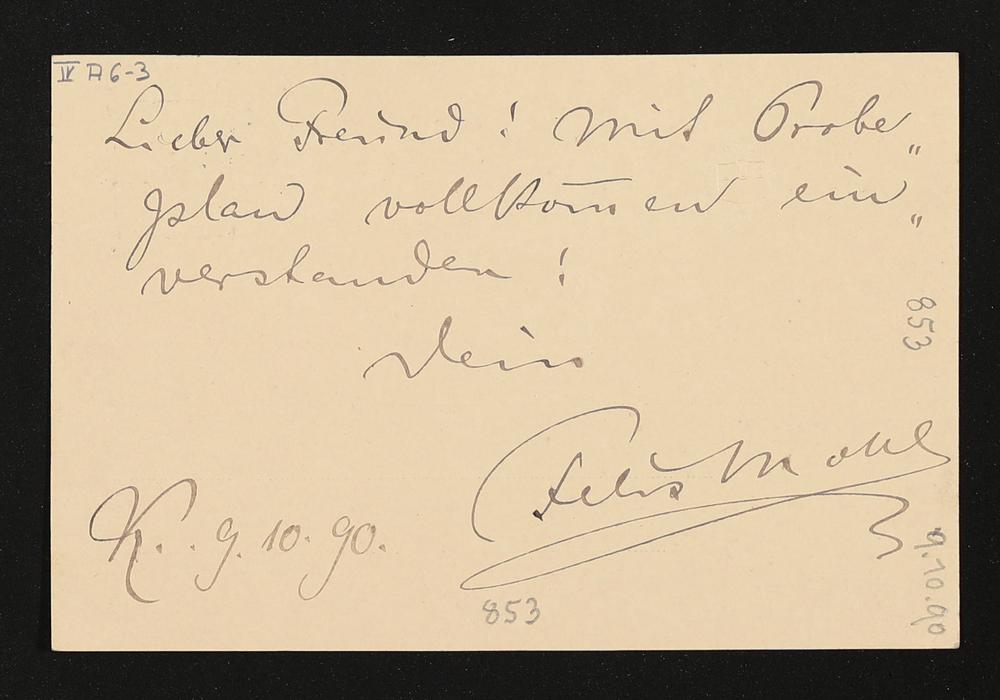 IV A6-3
Lieber Freund! Mit Probe„
plan vollkom̅en ein„
verstanden!
Dein
Felix Mottl
K. . 9. 10. 90.
853
853
9.10.90